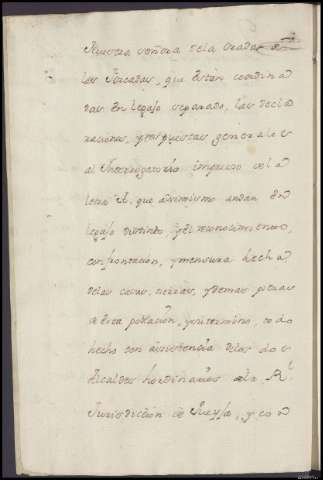 Nuestra señora dela
las Arcadas, que estan coordina
das en legajo separado, las decla
raciones, y respuestas generales
al Interrogatorio impreso dela
letra A. que asimismo andan en
legajo distinto y el reconocimiento,
confrontacion, y mensura hecha
delas casas, tierras, y demas piezas
de esta poblacion, y su termino, todo
hecho con asistencia delos dos
Alcaldes hordinarios de la Rl.
Jurisdiccion de y con